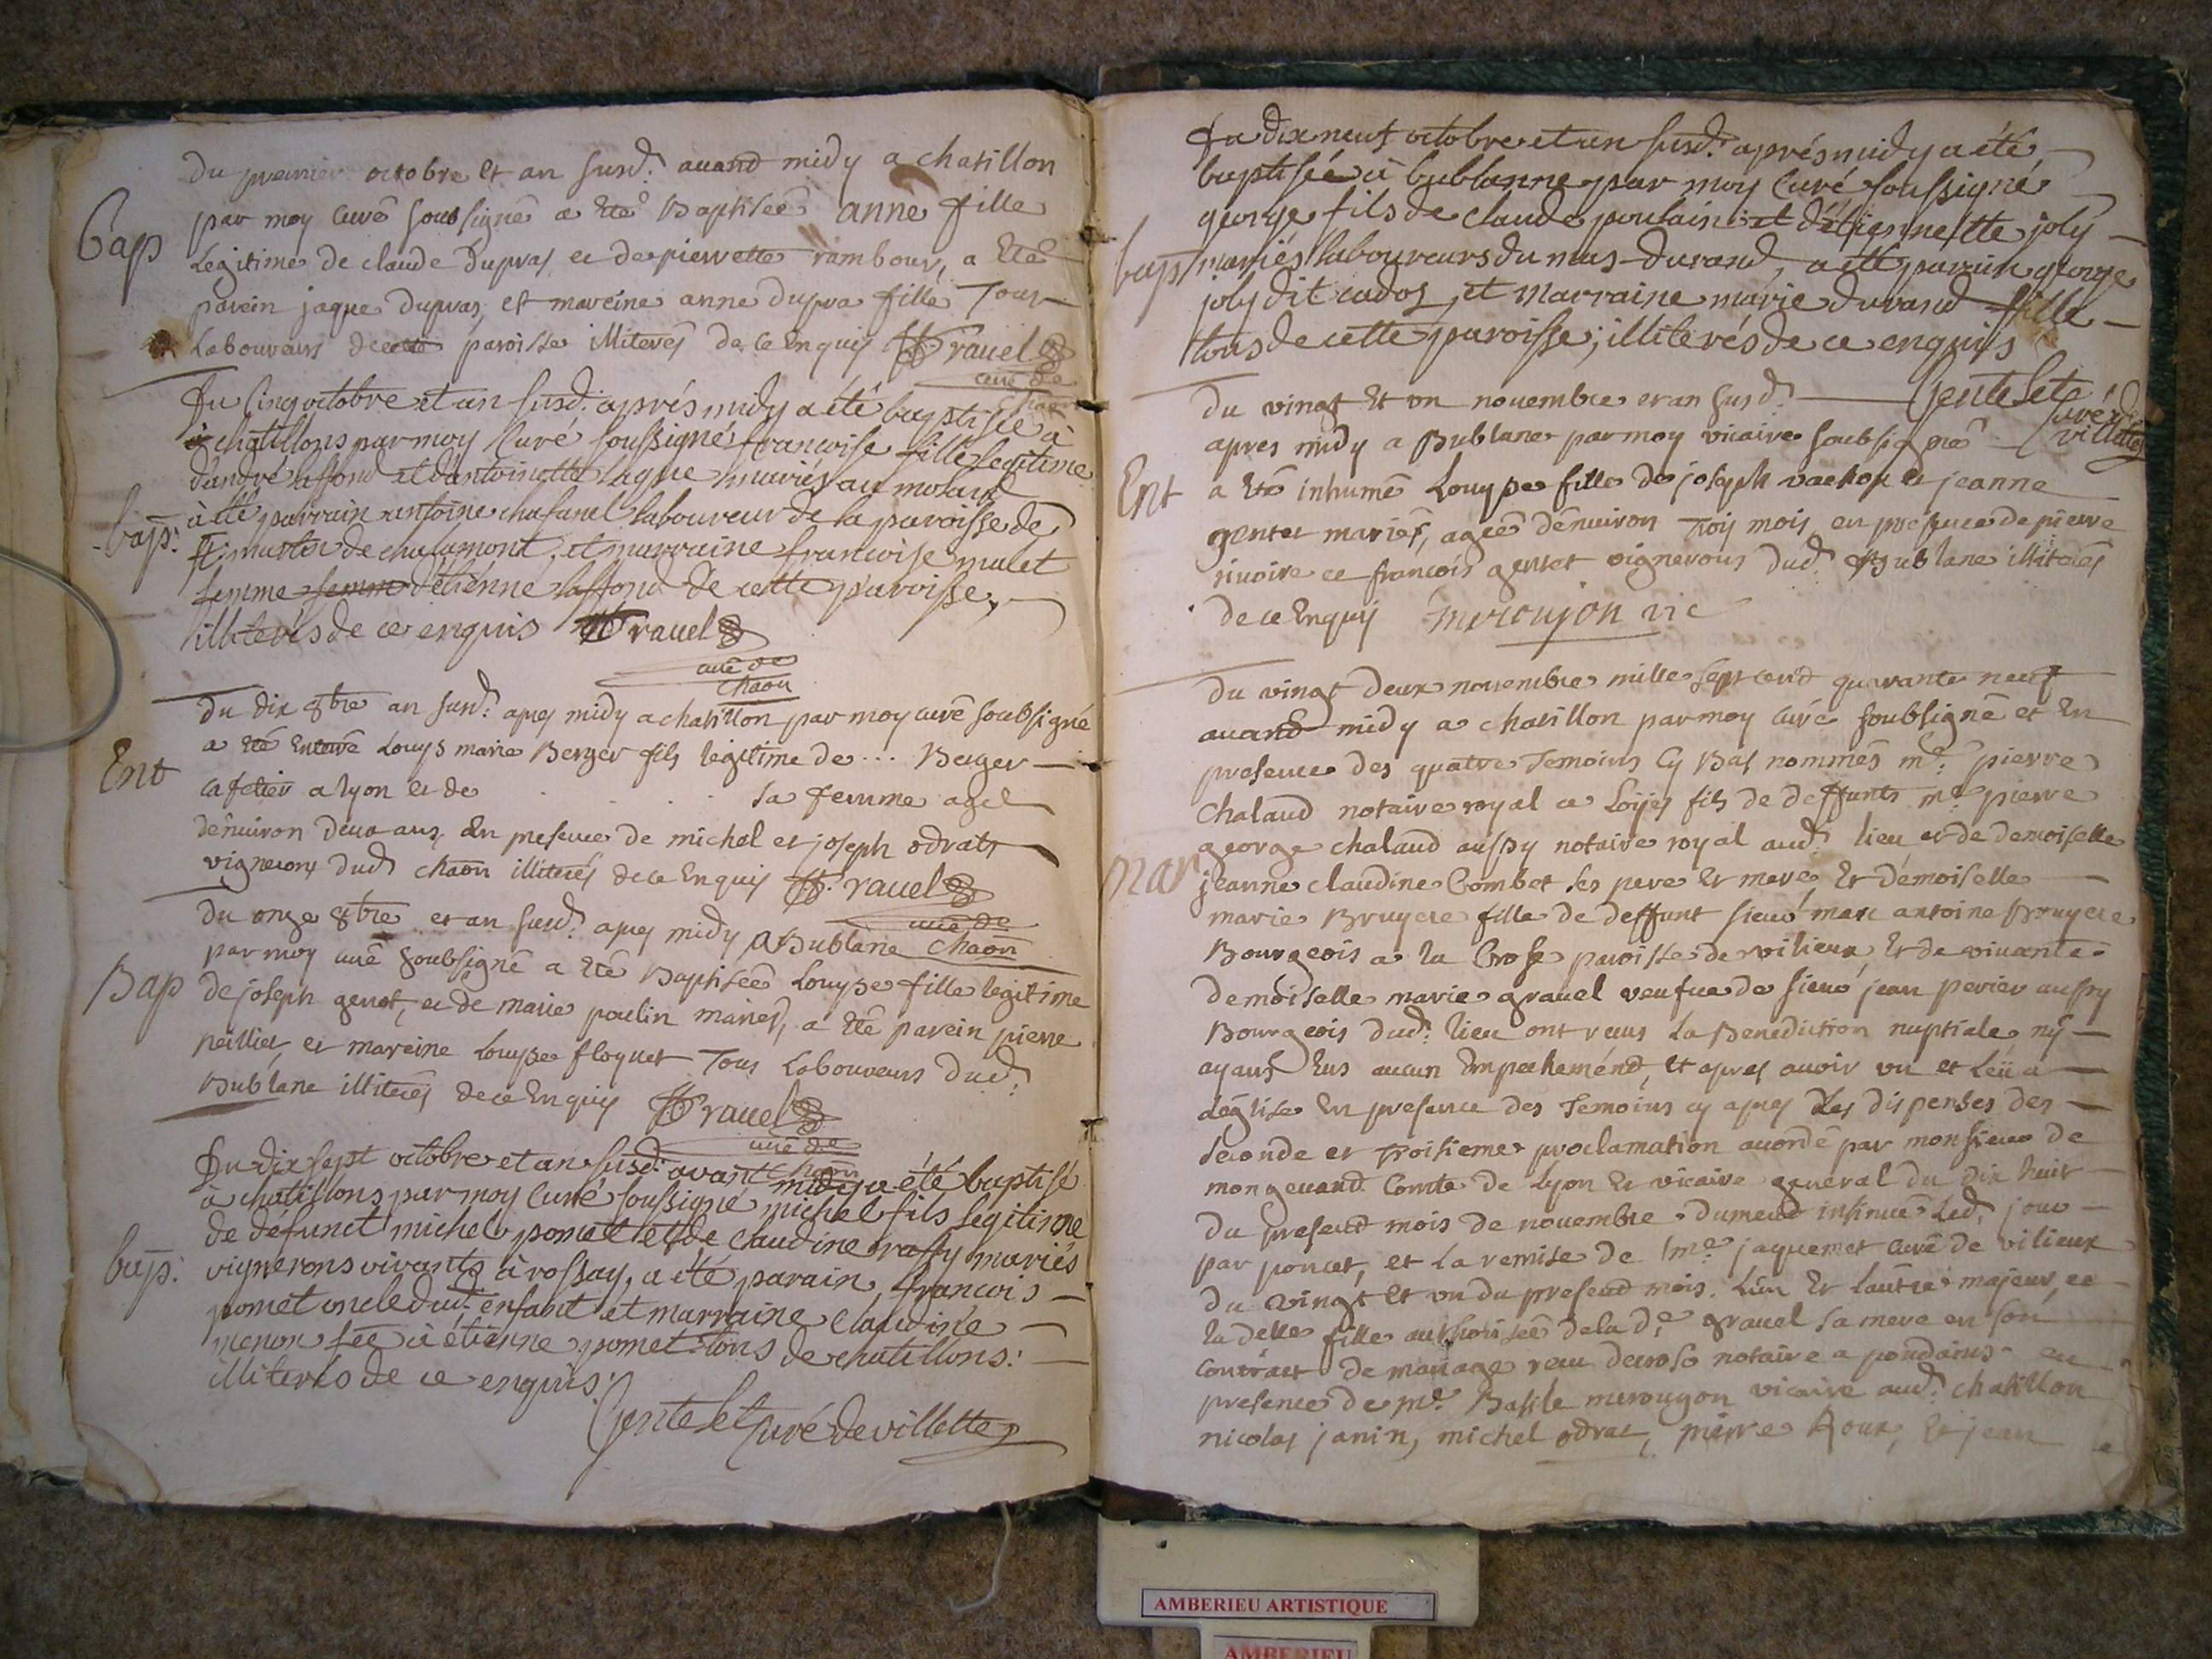 du premier octobre Et an susd. auand midy a chatillon
Bap
par moy curé soubsigné a Eté Baptisée anne fille
Legitime de claude dupras ee de pierrette rambour, a Eté
parein jaque dupras, et mareine anne dupra fille Tous
Laboureurs decette paroisse illiterés de ce Enquis rauel
curé de
chaon
Du Cinq octobre et an susd. aprés midy a été baptisée à
chatillons par moy Curé soussigné francoise fille legitime
d'andré laffond et d'antoinette mariés au molard
bap:
à été parrain antoine chasanel laboureur de la paroisse de
st. martin de chalamont, et marraine francoise mulet
femme d'étienne laffond de cette paroisse,
illiterés de ce enquis rauel
curé de
chaon
Du dix 8bre an susd. apres midy a chatillon par moy curé soubsigné
a Eté Enterré Louys marie Berger fils legitime de ... Berger
Ent
Cafetier a lyon et de . . . . sa femme agé
denuiron deux ans, En presence de michel et joseph odrats
vignerons dud chaon illiterés de ce Enquis rauel
curé de
chaon
Du onze 8bre et an susd. apres midy a Bublane
par moy curé soubsigné a Eté Baptisée Louyse fille legitime
Bap
de joseph genet, ee de marie poulin mariés, a Eté parein pierre
peillier, et mareine Louyse floquet Tous Laboureurs dud.
Bublane illiterés de ce Enquis rauel
curé de
chaon
Du dix sept octobre et an susd. avant midy a été baptisé
à chatillons par moy Curé soussigné michel fils legitime
de défunct michel pomet et de claudine mariés
bap:
vignerons vivants à rossay, a été parain, francois
pomet oncle dud. enfant et marraine claudine
menon à étienne pomet tous de chatillons:
illiterés de ce enquis:
Gentelet Curé de villette
Du dix neuf octobre et an susd. aprés midy a été
baptisée à bublanne par moy Curé soussigné
george fils de claude poulain et d'étiennette joly
bap
mariés laboureurs du mas-durand, a été parain george
joly dit cadoz, et marraine marie durand fille
tous de cette paroisse; illiterés de ce enquis
Gentelet
Curé de
villette
Du vingt Et un nouembre et an susd.
apres midy a Bublane par moy vicaire soubsigné
Ent
a Eté inhumé Louyse fille de joseph vachon et jeanne
gentet mariés, agée denuiron Trois mois, en presence de pierre
riuoire ee francois gentet vignerons dud. Bublane illiterés
de ce Enquis merougon vic
Du vingt deux nouembre mille sept cend quarante neuf
auand midy a chatillon par moy curé soubsigné et En
presence des quatre Temoins Cy Bas nommés me. pierre
Chaland notaire royal a Loyes fils de deffunts me pierre
george chaland aussy notaire royal aud. lieu et de demoiselle
Mar
jeanne claudine Combet ses pere Et mere, Et démoiselle
marie Bruyere fille de deffunt sieur marc antoine Bruyere
Bourgeois a la Crose paroisse de vilieux, Et de viuante
demoiselle marie grauel veufue de sieur jean perier aussy
Bourgeois dud. lieu ont reeus La Benediction nuptiale n'y
ayans Eus aucun Empechemend, Et apres auoir vu et Leu a
déglise En presence des Temoins cy apres Les dispenses des
seconde et Troisieme proclamation accordé par monsieur de
mongeuand Comte de Lyon Et vicaire general du dix huit
du presend mois de nouembre dumend insinué Led. jour
par poncet, et La remise de me. jaquemet curé de vilieux
du vingt Et un du presend mois. L'un Et Lautre majeur, ee
la delle fille authorisée dela de. grauel sa mere en son
Contract de mariage receu notaire a poncins en
presence de me. Basile merougon vicaire aud. chatillon
nicolas janin, michel odrat, pierre Roux, Et jean
AMBERIEU ARTISTIQUE
AMBERIEU